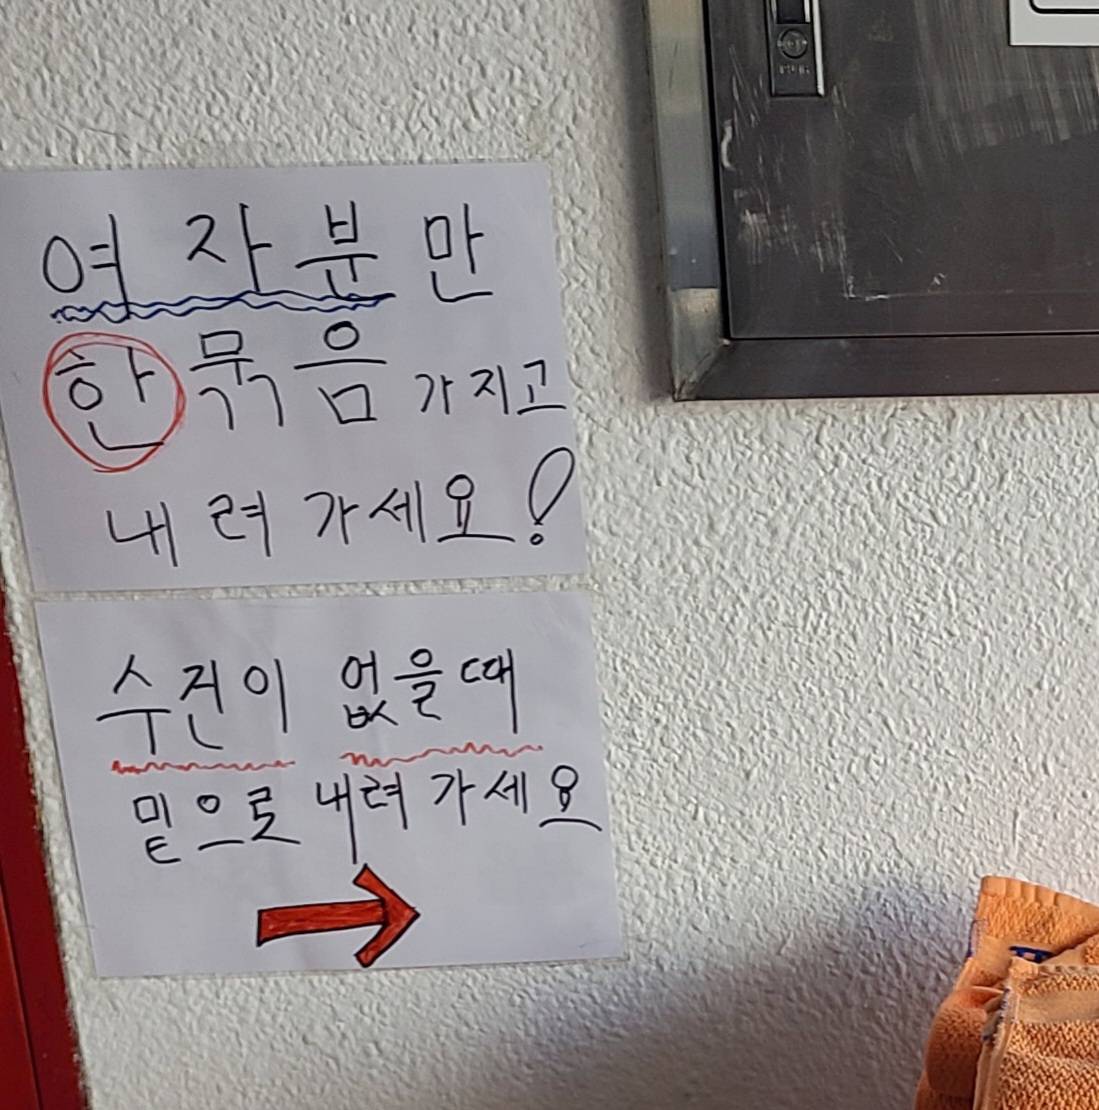 여자분만
한묶음 가지고
내려가세요!
수건이 없을때
밑으로 내려가세요